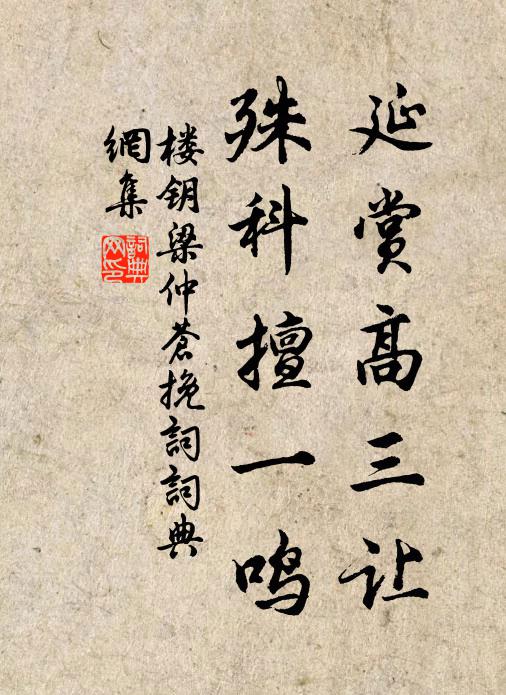 延赏高三让
殊科擅一鸣
楼钥梁仲苍挽詞詞典
網集
詞典网印